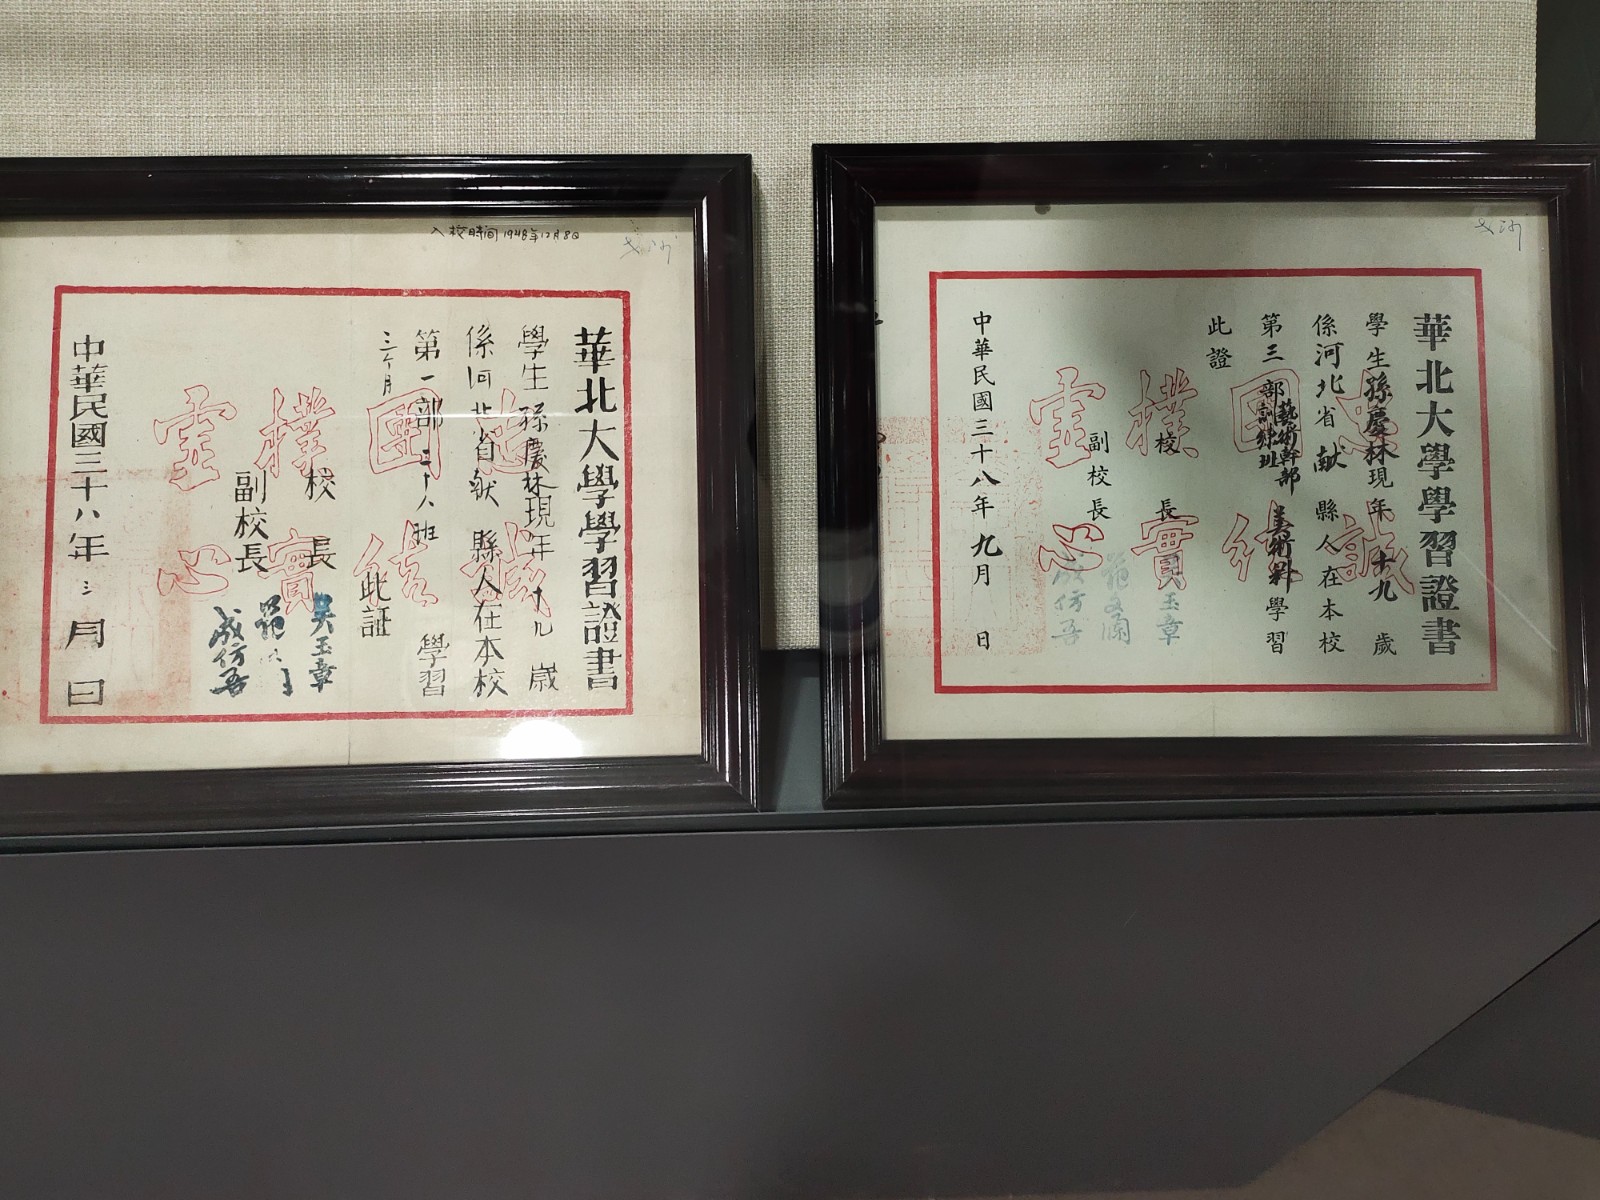 入校時间1948年12月8日
華北大學學習證書
學生孫慶林現年十九歲
係河北省献縣人在本校
第一部二十八班學習
三个月
此証
校長吳玉章
副校長
成仿吾
中華民國三十八年三月日
忠誠
團結
樸實
虛心
華北大學學習證書
學生孫慶林現年十九歲
係河北省献縣人在本校
第三部藝術幹部訓練班美術科學習
此證
校長吳玉章
副校長范文瀾
成仿吾
中華民國三十八年九月日
忠誠
團結
樸實
虛心